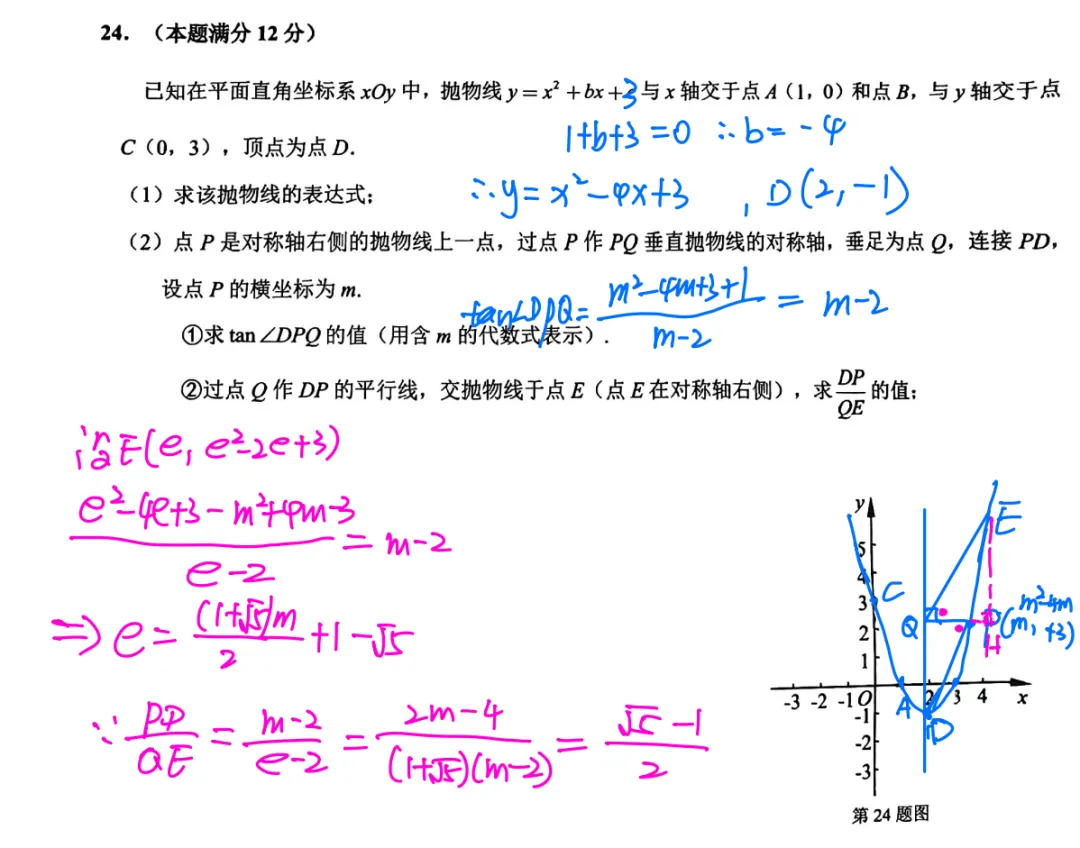 24. （本题满分 12 分）
已知在平面直角坐标系 xOy 中，抛物线 y = x² + bx + 3 与 x 轴交于点 A（1，0）和点 B，与 y 轴交于点
1+b+3=0 ∴b=-4
C（0，3），顶点为点 D.
（1）求该抛物线的表达式；
∴y=x²-4x+3 , D(2,-1)
（2）点 P 是对称轴右侧的抛物线上一点，过点 P 作 PQ 垂直抛物线的对称轴，垂足为点 Q，连接 PD，
设点 P 的横坐标为 m.
tan∠DPQ= (m²-4m+3+1)/(m-2) = m-2
①求 tan ∠DPQ 的值（用含 m 的代数式表示）.
②过点 Q 作 DP 的平行线，交抛物线于点 E（点 E 在对称轴右侧），求 DP/QE 的值；
设E(e, e²-2e+3)
(e²-4e+3-m²+4m-3)/(e-2) = m-2
⇒ e= (1+√5)m/2 +1-√5
∵ PD/QE = (m-2)/(e-2) = (2m-4)/((1+√5)(m-2)) = (√5-1)/2
y
E
5
4
3 C
Q
P(m, m²-4m+3)
H
2
1
-3 -2 -1 O A 2 3 4 x
-1 D
-2
-3
第 24 题图